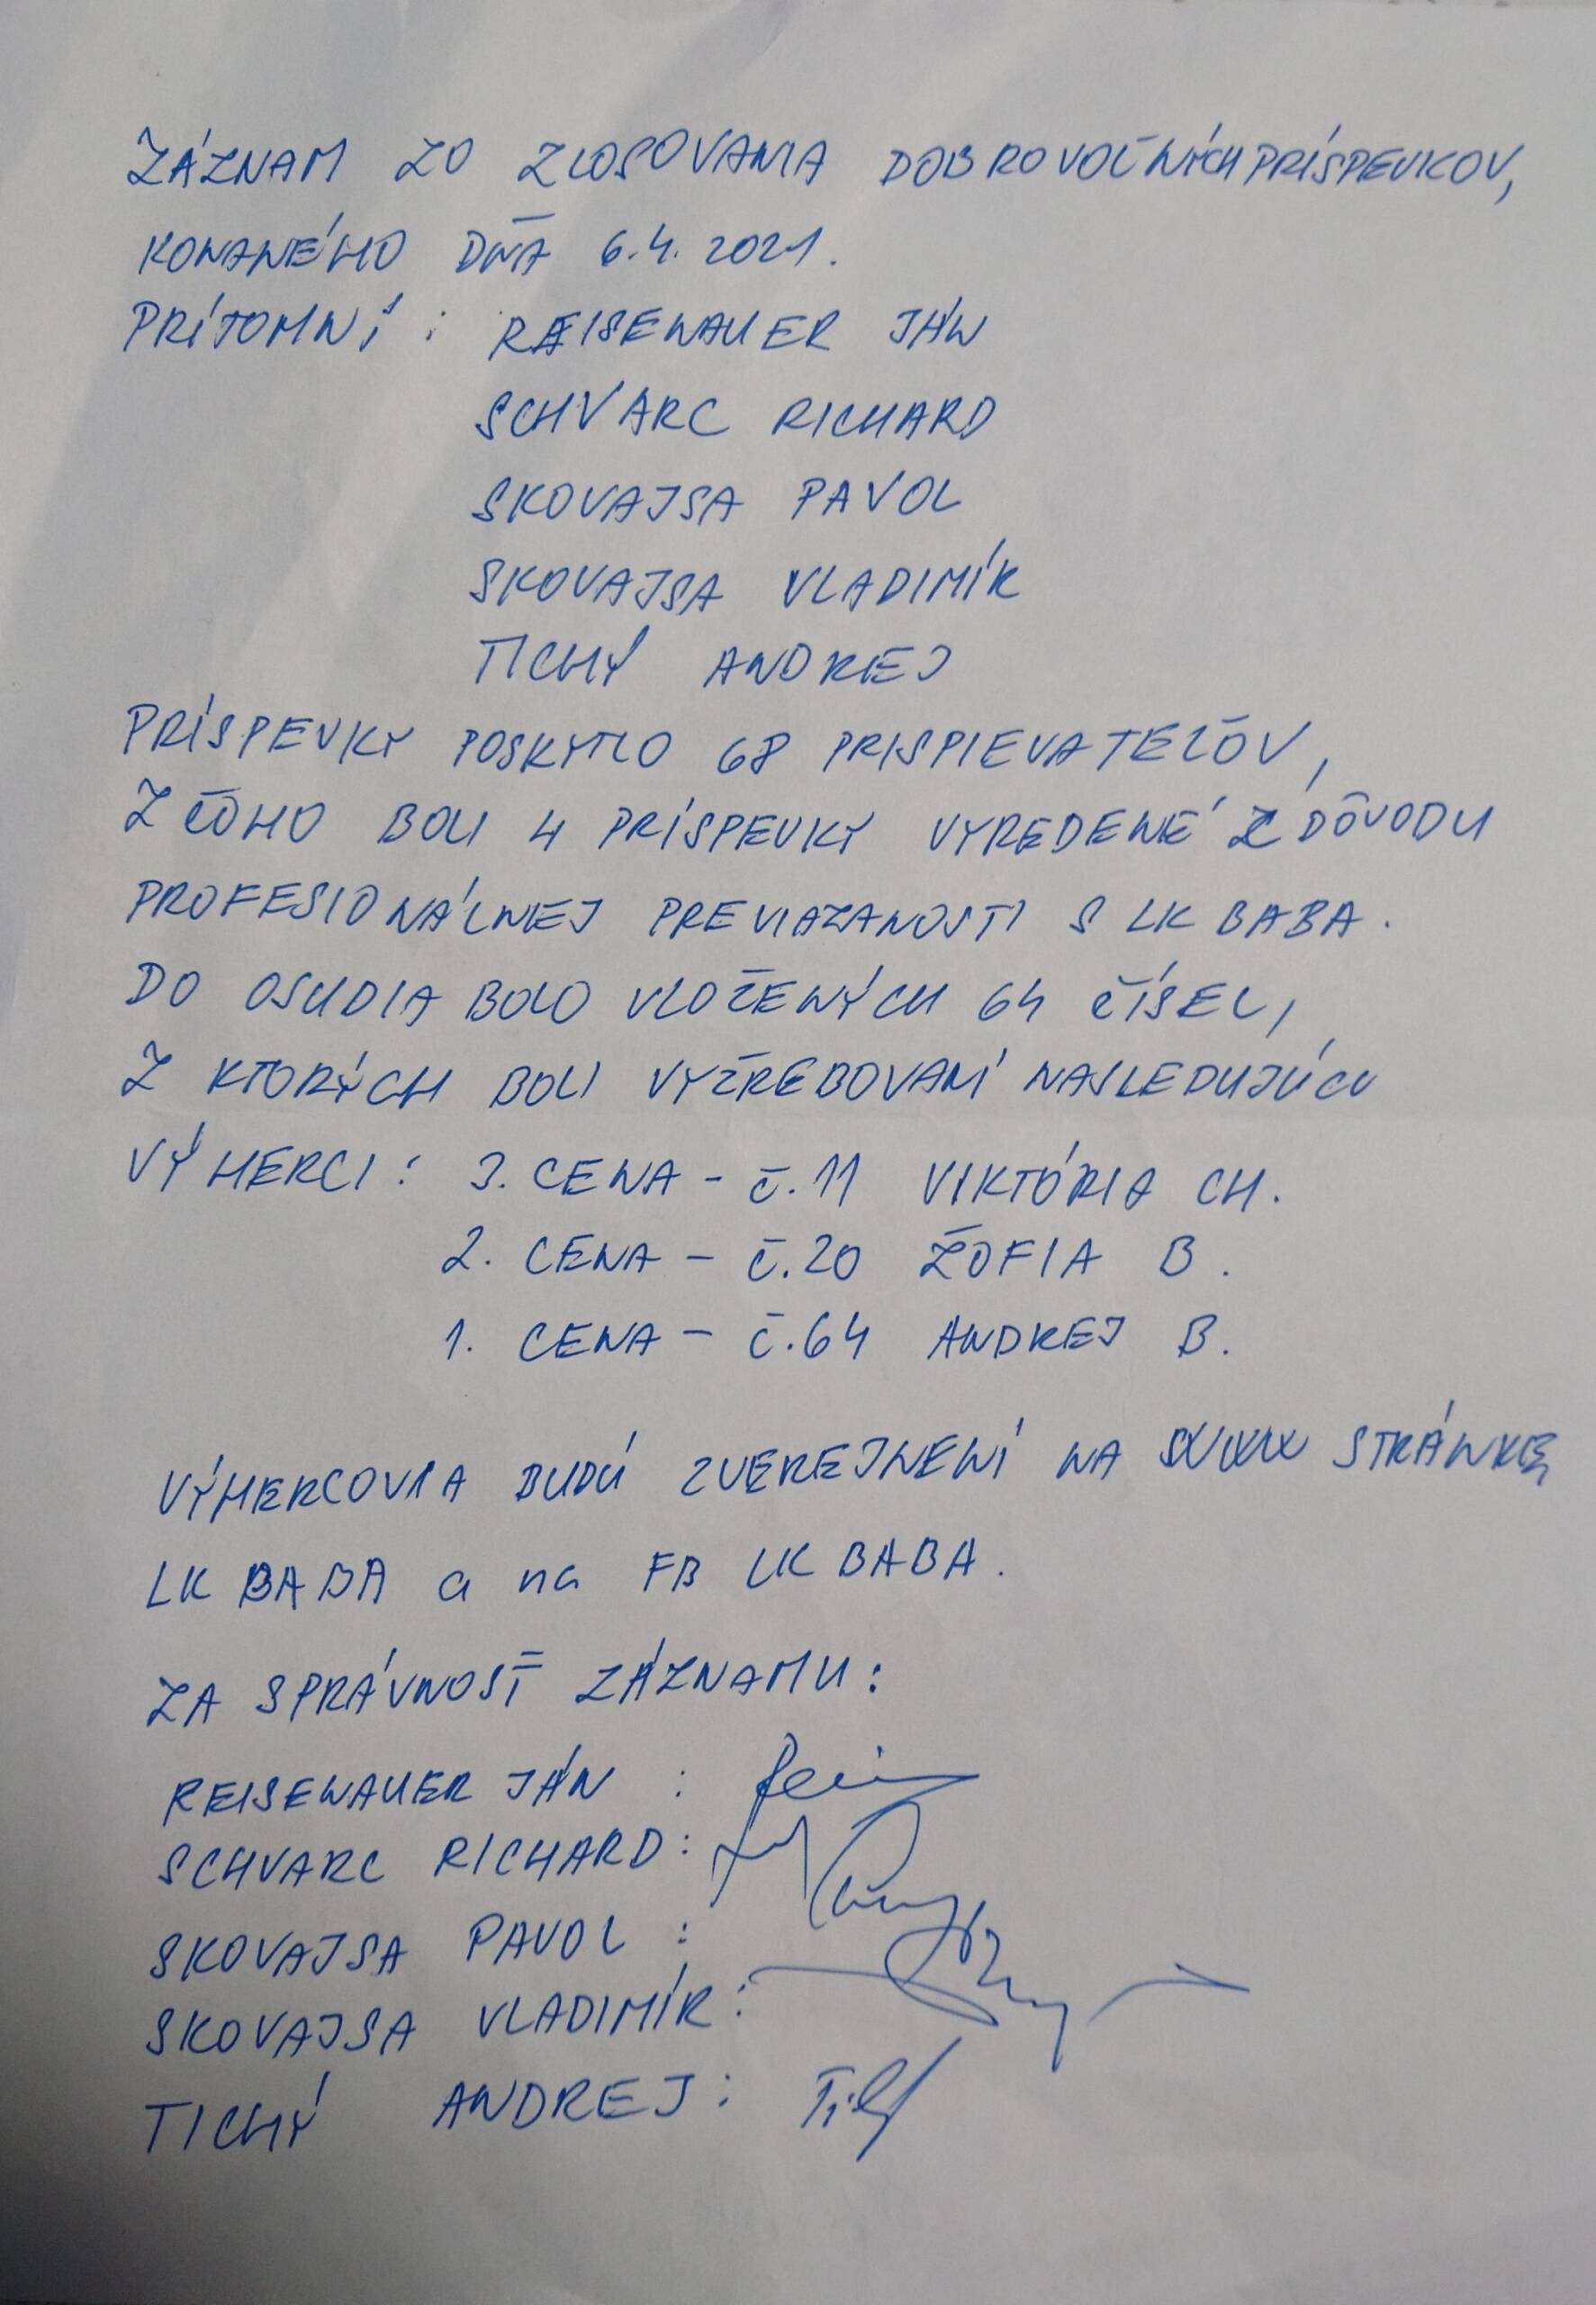 ZÁZNAM ZO ZLOSOVANIA DOBROVOĽNÝCH PRÍSPEVKOV,
KONANÉHO DŇA 6.4.2021.
PRÍTOMNÍ: REISENAUER JÁN
SCHVARC RICHARD
SKOVAJSA PAVOL
SKOVAJSA VLADIMÍR
TICHÝ ANDREJ
PRÍSPEVKY POSKYTLO 68 PRISPIEVATEĽOV,
Z ČOHO BOLI 4 PRÍSPEVKY VYREDENÉ Z DÔVODU
PROFESIONÁLNEJ PREVIAZANOSTI S LK BABA.
DO OSUDIA BOLO VLOŽENÝCH 64 ČÍSEL,
Z KTORÝCH BOLI VYŽREBOVANÍ NASLEDUJÚCI
VÝHERCI: 3. CENA - č.11 VIKTÓRIA CH.
2. CENA - č.20 ŽOFIA B.
1. CENA - č.64 ANDREJ B.
VÝHERCOVIA BUDÚ ZVEREJNENÍ NA STRÁNKE
LK BABA a na FB LK BABA.
ZA SPRÁVNOSŤ ZÁZNAMU:
REISENAUER JÁN :
SCHVARC RICHARD:
SKOVAJSA PAVOL :
SKOVAJSA VLADIMÍR:
TICHÝ ANDREJ: